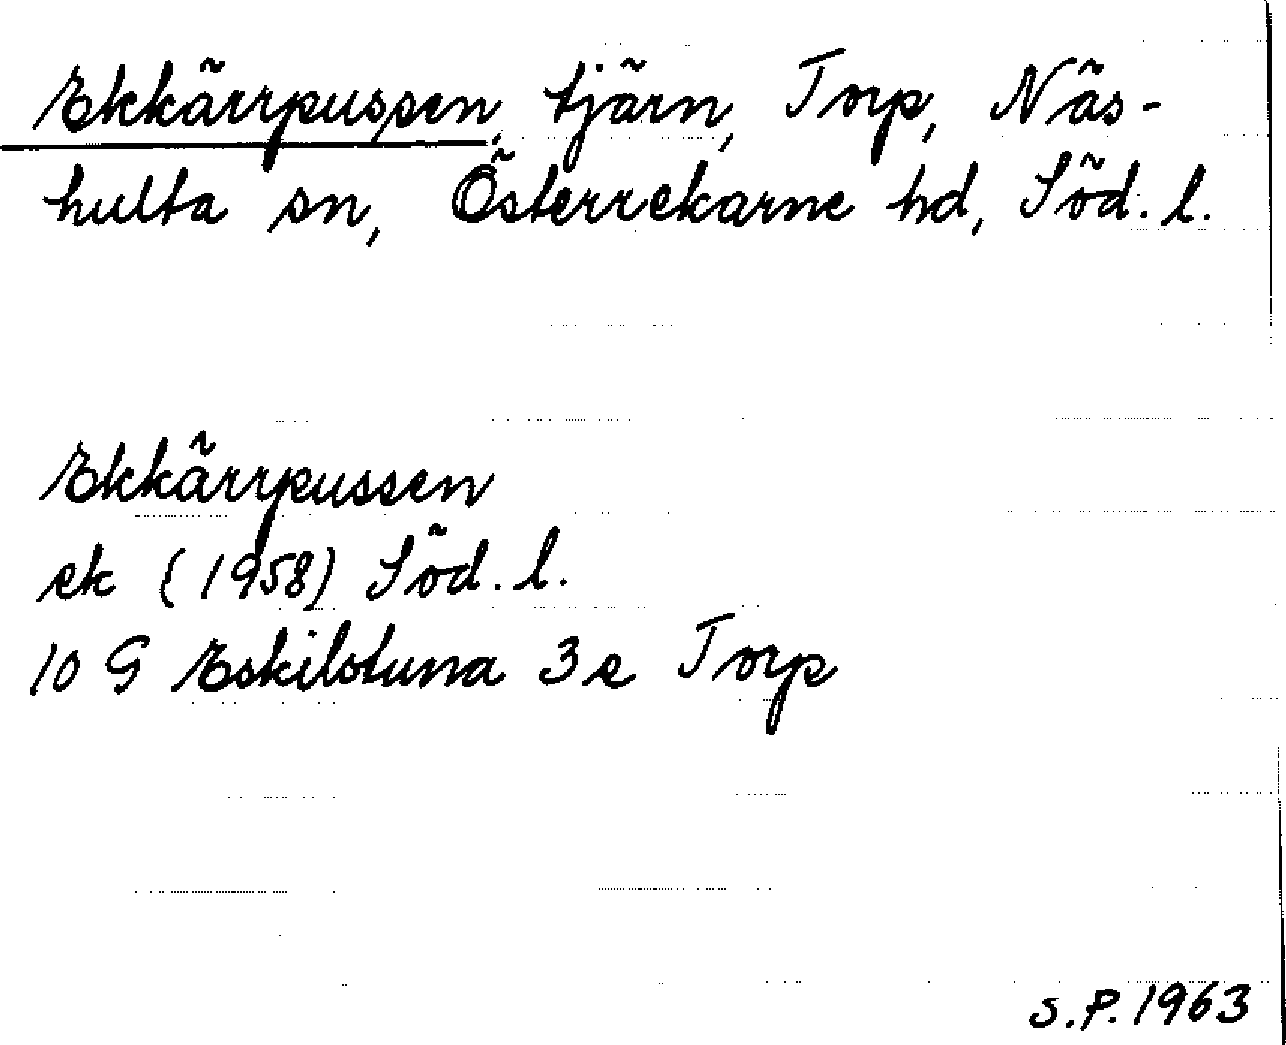 Ekkärrpussen, tjärn, Torp, Näs-
hulta sn, Österrekarne hd, Söd. l.
Ekkärrpussen
ek (1958) Söd. l.
10 G Eskilstuna 3e Torp
S.P. 1963